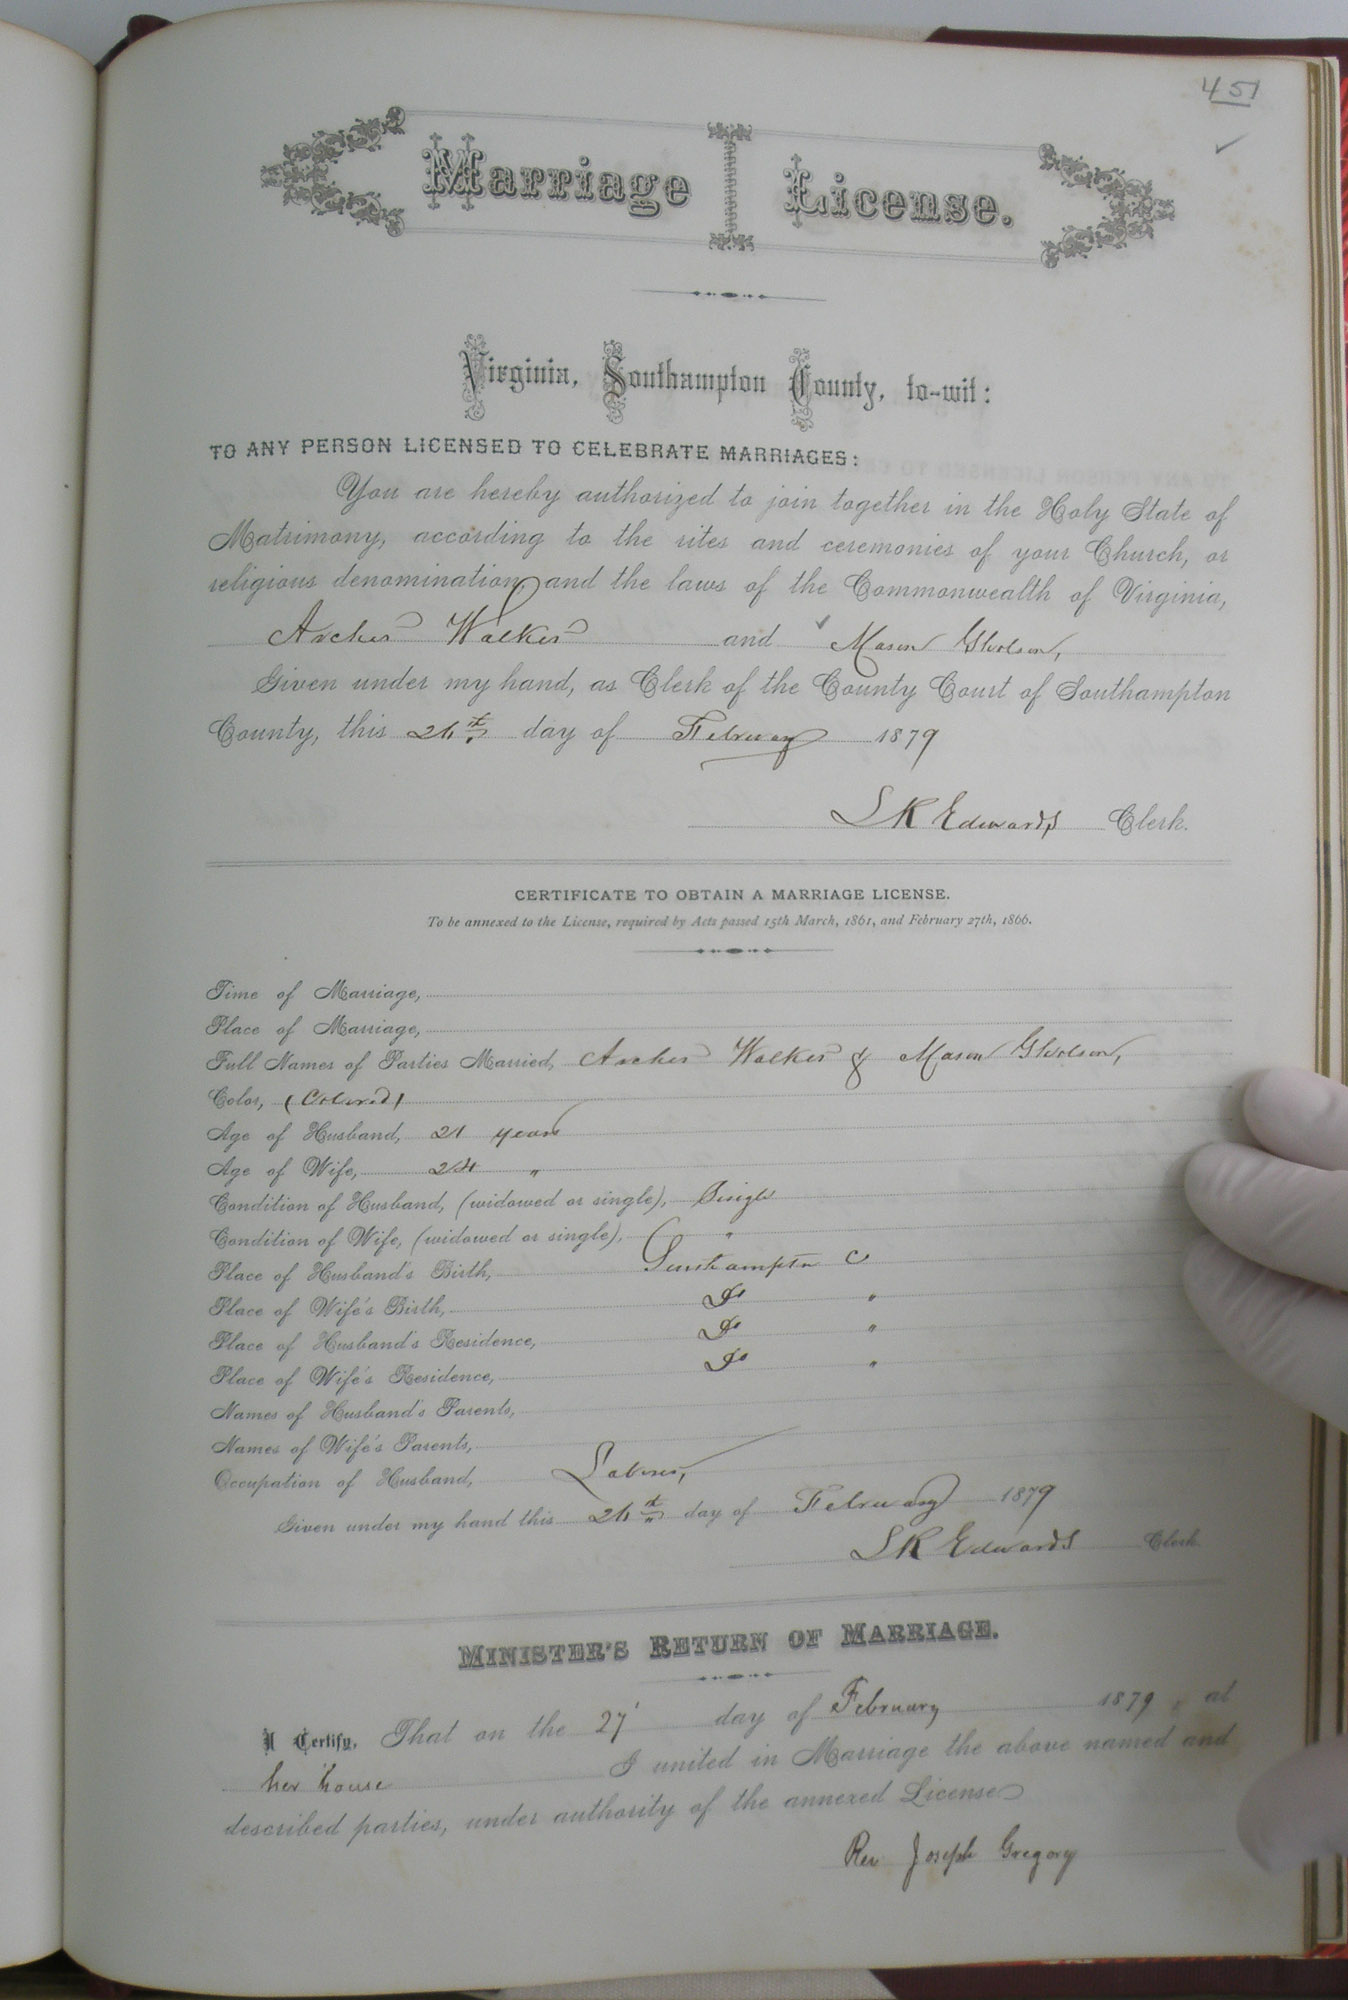 451
Marriage License.
Virginia, Southampton County, to-wit:
TO ANY PERSON LICENSED TO CELEBRATE MARRIAGES:
You are hereby authorized to join together in the Holy State of
Matrimony, according to the rites and ceremonies of your Church, or
religious denomination, and the laws of the Commonwealth of Virginia,
Archer Walker and Mason Gholson,
Given under my hand, as Clerk of the County Court of Southampton
County, this 26th day of February 1879
L R Edwards Clerk.
CERTIFICATE TO OBTAIN A MARRIAGE LICENSE.
To be annexed to the License, required by Acts passed 15th March, 1861, and February 27th, 1866.
Time of Marriage,
Place of Marriage,
Full Names of Parties Married, Archer Walker & Mason Gholson,
Color, (Colored)
Age of Husband, 21 years
Age of Wife, 24 "
Condition of Husband, (widowed or single), Single
Condition of Wife, (widowed or single), "
Place of Husband's Birth, Southampton Co
Place of Wife's Birth, Do "
Place of Husband's Residence, Do "
Place of Wife's Residence, Do "
Names of Husband's Parents,
Names of Wife's Parents,
Occupation of Husband, Laborer,
Given under my hand this 26th day of February 1879
L R Edwards Clerk.
MINISTER'S RETURN OF MARRIAGE.
I Certify, That on the 27 day of February 1879, at
her house I united in Marriage the above named and
described parties, under authority of the annexed License
Rev Joseph Gregory